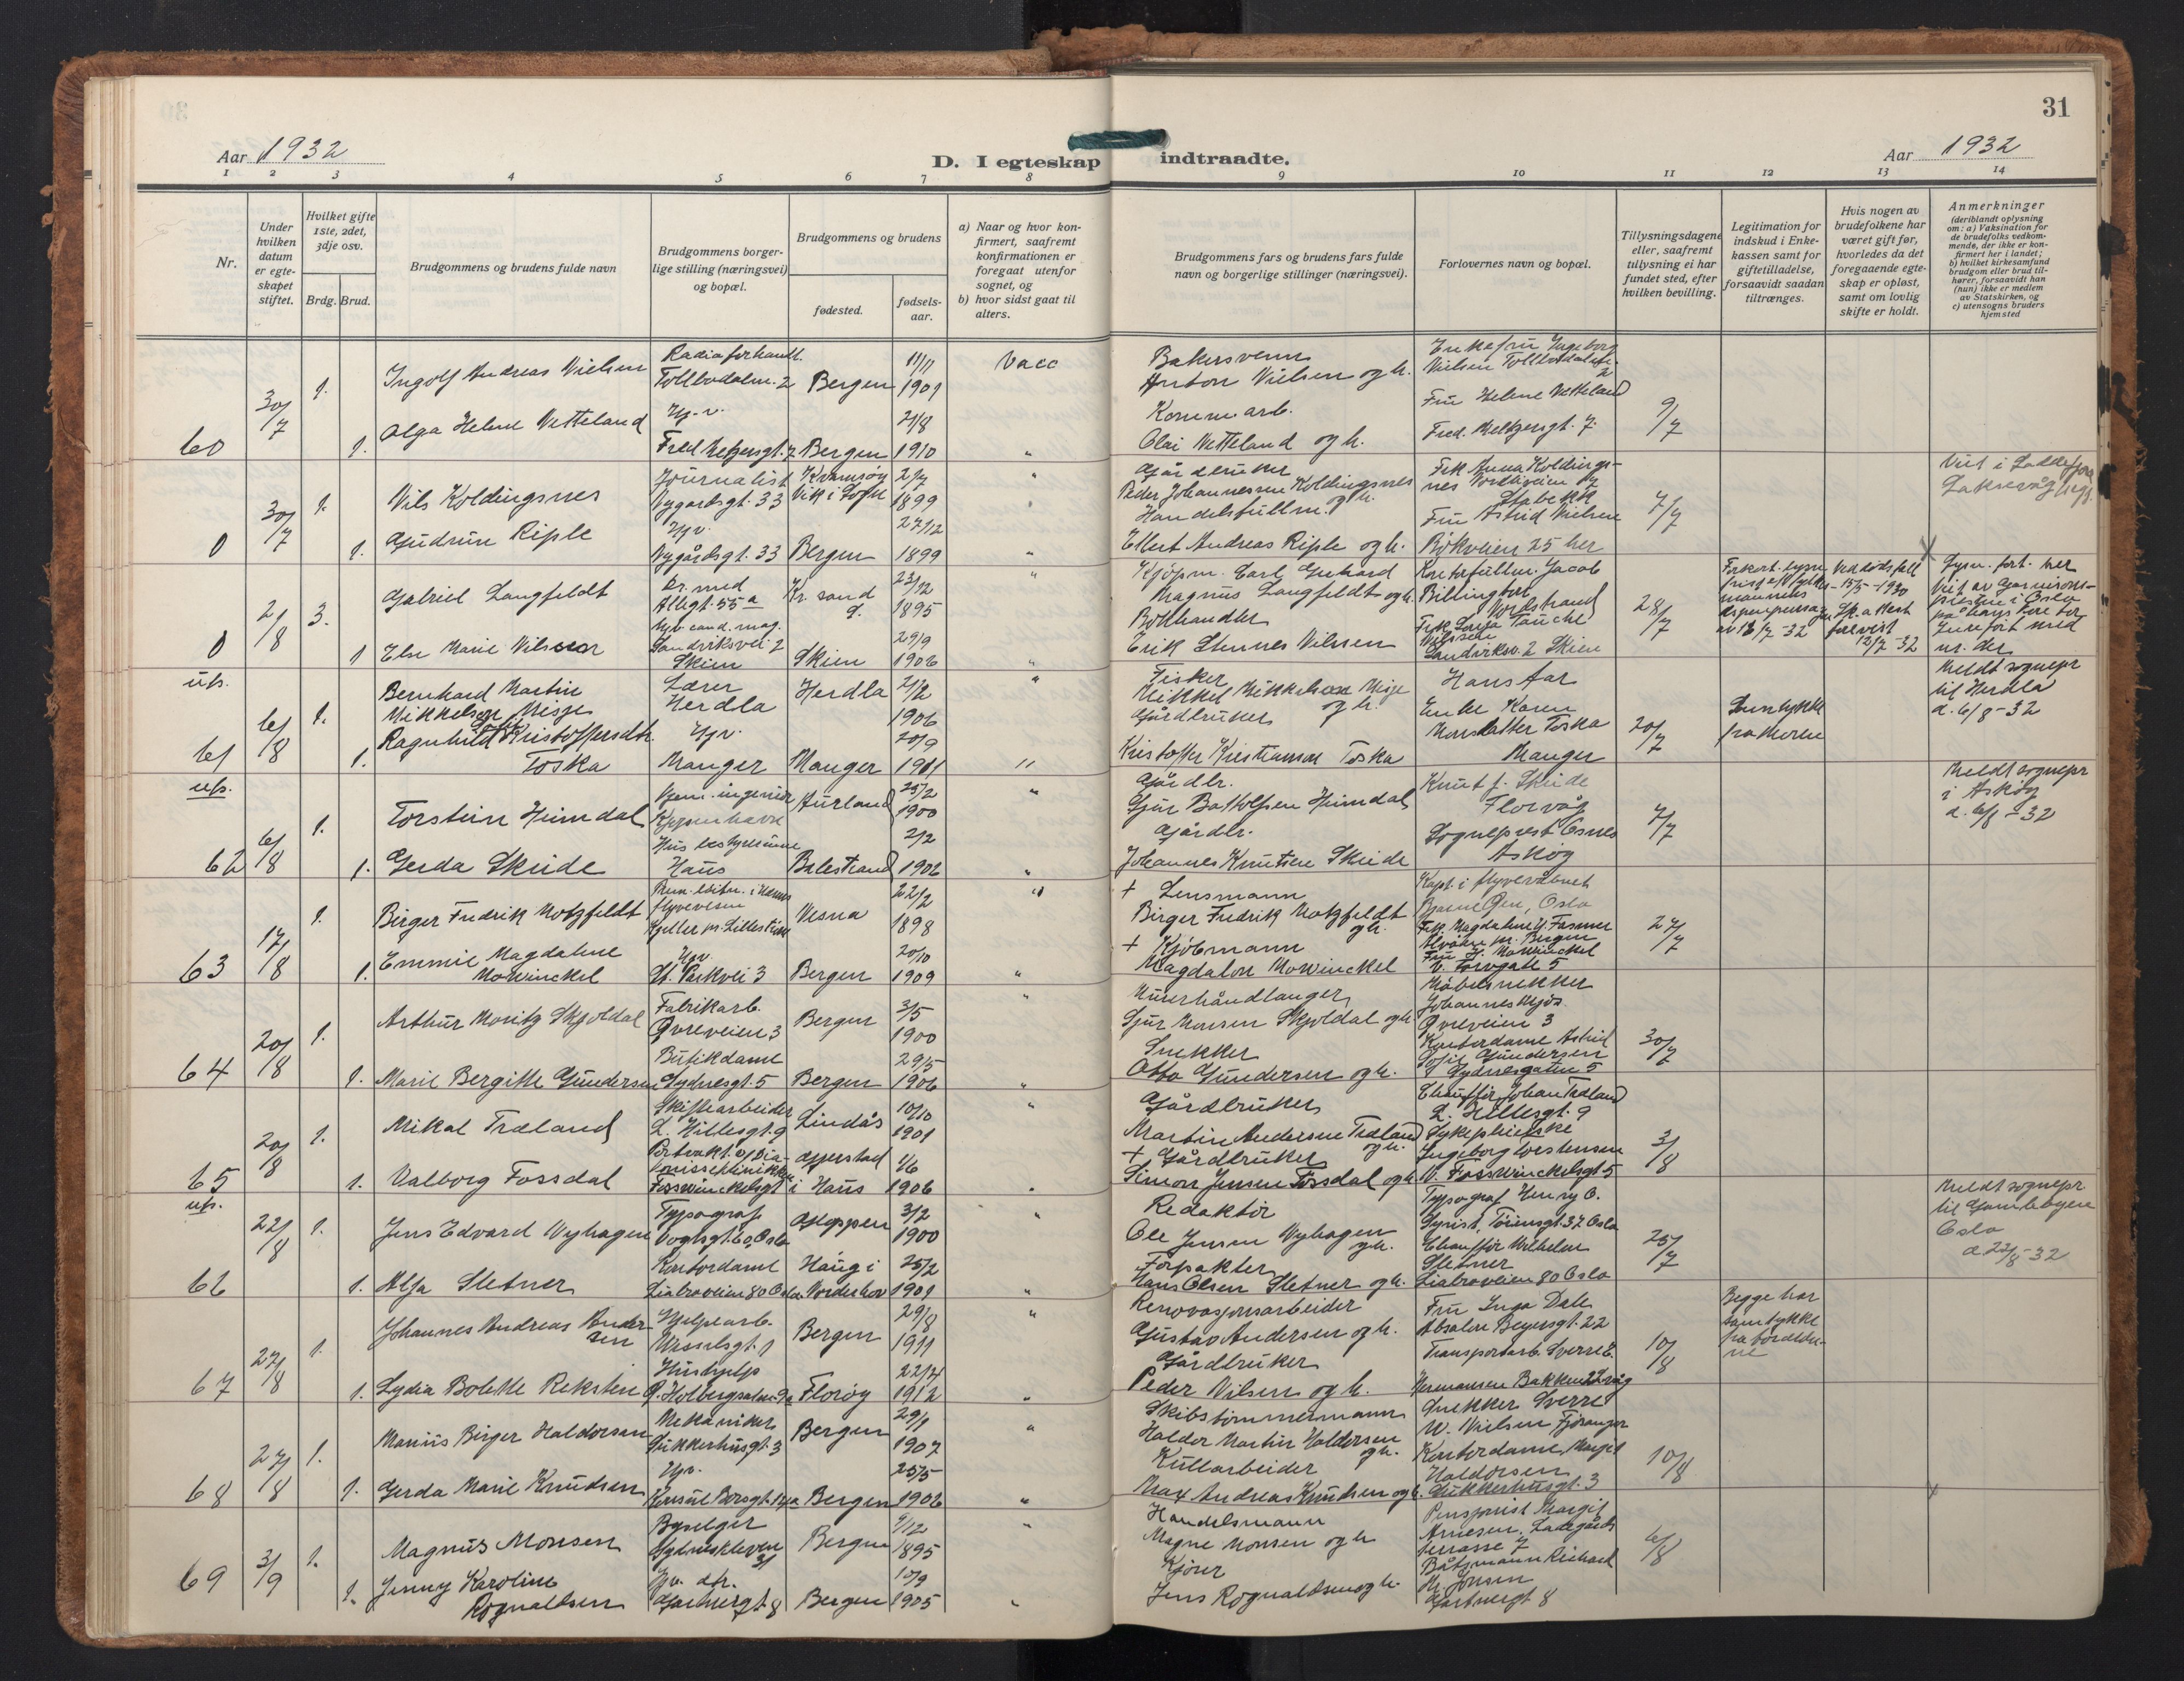 Aar 1932
D. I egteskap indtraadte.
Aar 1932
31
1 2 3 4 5 6 7 8 9 10 11 12 13 14
Nr.
Under hvilken datum er egteskapet stiftet.
Hvilket gifte 1ste, 2det, 3dje osv.
Brdg. Brud.
Brudgommens og brudens fulde navn
Brudgommens borgerlige stilling (næringsvei) og bopæl.
Brudgommens og brudens
fødested.
fødselsaar.
a) Naar og hvor konfirmert, saafremt konfirmationen er foregaat utenfor sognet, og
b) hvor sidst gaat til alters.
Brudgommens fars og brudens fars fulde navn og borgerlige stillinger (næringsvei).
Forlovernes navn og bopæl.
Tillysningsdagene eller, saafremt tillysning ei har fundet sted, efter hvilken bevilling.
Legitimation for indskud i Enkekassen samt for giftetilladelse, forsaavidt saadan tiltrænges.
Hvis nogen av brudefolkene har været gift før, hvorledes da det foregaaende egteskap er opløst, samt om lovlig skifte er holdt.
Anmerkninger
(deriblandt oplysning om: a) Vaksination for de brudefolks vedkommende, der ikke er konfirmert her i landet;
b) hvilket kirkesamfund brudgom eller brud tilhører, forsaavidt han (hun) ikke er medlem av Statskirken, og
c) utensogns bruders hjemsted
60 30/7 1. Ingolf Andreas Nielsen Radioforhandl. Tollbodalm. 2 Bergen 11/11 1901 Vacc
Bakersvenn Anton Nielsen og h. Enkefru Ingeborg Nielsen Tollbodalm. 2
1. Olga Helene Vetteland Hj. v. Fred Meltzersgt. 7 Bergen 21/8 1910 "
Kommarb. Olai Vetteland og h. Fru Helene Vetteland Fred. Meltzersgt. 7. 9/7
0 30/7 1. Nils Koldingsnes Journalist Nygaardsgt. 33 Kvamsøy Vik i Sogn 2/7 1899 "
Gårdbruker Peder Johannessen Koldingsnes og h. Frk Anna Koldingsnes Stabekk 7/7
1. Gudrun Riple Hjv. Nygårdsgt. 33 Bergen 27/12 1899 "
Handelsfullm. Ellert Andreas Riple og h. Fru Astrid Nielsen Bøkveien 25 her
Viet i Laksevåg
0 2/8 3. Gabriel Langfeldt Dr. med Allégt. 55 a Kr. sand S. 23/12 1895 "
Kjøpm. Carl Gerhard Magnus Langfeldt og h. Kontorfullm. Jacob Billington Nordstrand 28/7
1 Else Marie Nilsson Hjv cand. mag. Sandviksvei 2 Skien Skien 29/9 1906 "
Bokhandler Erik Stennes Nilssen Frk Sonja Tauche Nilssen Sandviksv. 2 Skien
av 13/7-32
Ved dødsfall 15/5-1930 Sk. attest forevist 12/7-32
Viet av Garnisonspresten i Oslo
ub.
61 6/8 1. Bernhard Martin Mikkelsen Misje Lærer Herdla Herdla 21/2 1906 "
Fisker Mikkel Mikkelsen Misje og h. Hans Aar
1. Ragnhild Kristoffersdtr. Toska Hjv. Manger Manger 20/9 1911 "
Gårdbruker Kristoffer Kristiansen Toska Enke Karen Monsdatter Toska Manger 20/7
Samtykke fra moren
Meldt sognepr til Herdla d. 6/8-32
ub.
62 6/8 1. Torstein Heimdal Kjem. ingeniør Kjøpenhavn Aurland 25/2 1900 "
Gårdbr. Sjur Botolfsen Heimdal Knut J. Skeide Florvåg 7/7
1. Gerda Skeide Husbestyrerinne Haus Balestrand 2/2 1902 "
Gårdbr. Johannes Knutsen Skeide Sogneprest Osnes Askøy
Meldt sognepr i Askøy d. 6/8-32
63 17/8 1. Birger Fredrik Motzfeldt flyvevesen Kjeller pr. Lillestrøm Vesna 22/2 1898 "
+ Lensmann Birger Fredrik Motzfeldt og h. Kapt. i flyvevåbnet Bjarne Øen, Oslo 27/7
1. Emmie Magdalene Mowinckel Hjv. St. Parkvei 3 Bergen 20/10 1909 "
+ Kjøbmann Magdalon Mowinckel Frk. Magdalene U. Fasmer Alvøen pr. Bergen Fru H. Mowinckel V. Torvgate 5
64 20/8 1. Arthur Moritz Skjoldal Fabrikarb. Øvreveien 3 Bergen 3/5 1900 "
Murerhåndlanger Sjur Monsen Skjoldal og h. Møbelsnekker Johannes Mjøs Øvreveien 3 30/7
1. Marie Bergitte Gundersen Butikdame Sydnesgt. 5 Bergen 29/5 1906 "
Snekker Otto Gundersen og h. Kontordame Astrid Sofie Gundersen Sydnesgaten 5
65 20/8 1. Mikal Træland Skiftearbeider L. Hillesgt. 9 Lindås 10/10 1901 "
Gårdbruker Martin Andersen Træland og h. Chauffør Johan Træland L. Hillesgt. 9 3/8
1. Valborg Fossdal Fosswinckelsgt i Haus 1/6 1906 "
+ Gårdbruker Simon Jensen Fossdal og h. Sykepleierske Ingeborg Torstensen V. Fosswinckelsgt 5
ub.
66 22/8 1. Jens Edvard Nyhagen Typograf Vogtsgt. 60, Oslo Gjeppen 3/2 1900 "
Redaktør Ole Jensen Nyhagen og h. Typograf Henry O. Syrist, Tøiensgt. 37 Oslo 25/7
1. Alfa Sletner Kontordame Liabroveien 80 Oslo Haug i Norderhov 25/2 1901 "
Forpakter Hans Olsen Sletner og h. Chauffør Wilhelm Sletner Liabroveien 80 Oslo
Meldt sognepr til Gamlebyen Oslo d 22/8-32
67 27/8 1. Johannes Andreas Andersen Hjelpearb. Wesselsgt. 1 Bergen 29/8 1911 "
Renovasjonsarbeider Gustav Andersen og h. Fru Inga Dale Absalon Beyersgt. 22 10/8
1. Lydia Bolette Reksten Hushjelp Florøy 22/4 1912 "
Gårdbruker Peder Nilsen og h. Transportarb. Sverre E. Hermansen
Begge har samtykke fra foreldrene
68 27/8 1. Marius Birger Haldorsen Mekaniker Sukkerhusgt. 3 Bergen 29/1 1907 "
Skibstømmermann Haldor Martin Haldorsen og h. Snekker Sverre W. Nielsen Fjøsanger 10/8
1. Gerda Marie Knudsen Hjv. Konsul Børsgt. 14a Bergen 25/5 1906 "
Kullarbeider Max Andreas Knudsen og h. Kontordame Margit Haldorsen Sukkerhusgt. 3
69 3/9 1. Magnus Monsen Byselger Sydneskleven 31 Bergen 9/12 1895 "
Handelsmann Magne Monsen og h Pensjonist Margit Arnesen, Ladegårdsterrasse 7 6/8
1. Jenny Karoline Rognaldsen Hjv. dtr. Gartnergt. 8 Bergen 10/9 1905 "
Kjører Jens Rognaldsen og h. Båtsmann Richard M. Jonsen Gartnergt 8